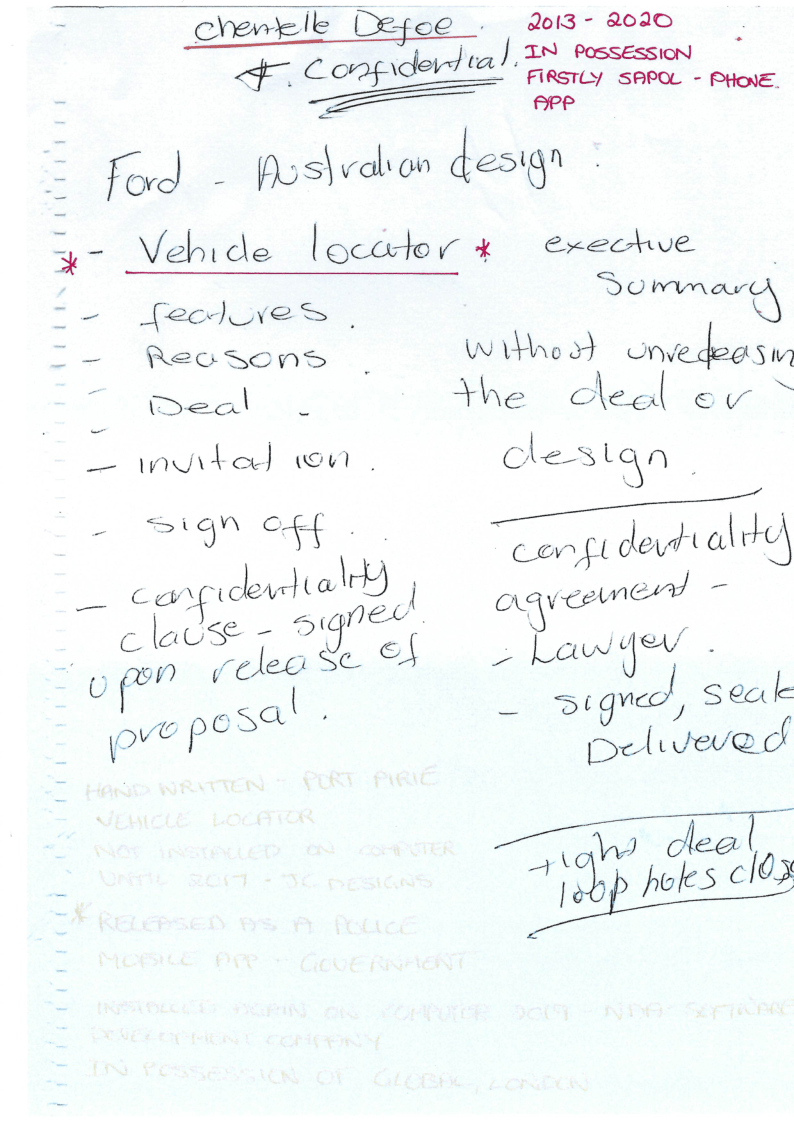 Chentelle Defoe.
* Confidential.
2013 - 2020
IN POSSESSION
FIRSTLY SAPOL - PHONE.
APP
Ford - Australian design.
* - Vehicle locator *
- features.
- Reasons.
- Deal -
- invitation.
- sign off.
- confidentiality
clause - signed
upon release of
proposal.
exective
Summary
without
the deal or
design.
confidentiality
agreement -
- Lawyer.
- signed,
Delivered
deal
loop holes
HAND WRITTEN - PORT PIRIE
VEHICLE LOCATOR
NOT INSTALLED ON COMPUTER
UNTIL 2017 - JC DESIGNS
* RELEASED AS A POLICE
MOBILE APP - GOVERNMENT
INSTALLED AGAIN ON COMPUTER 2019 - SOFTWARE
DEVELOPMENT COMPANY
IN POSSESSION OF GLOBAL, LONDON